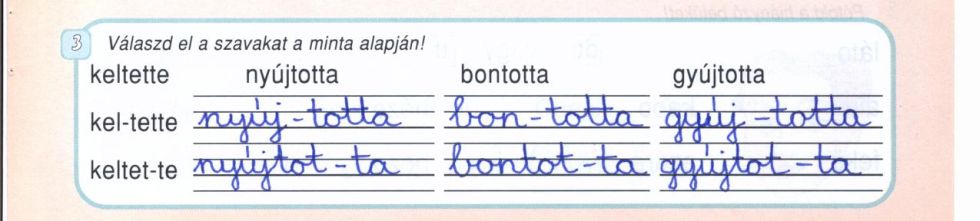 3 Válaszd el a szavakat a minta alapján!
keltette nyújtotta bontotta gyújtotta
kel-tette nyúj-totta bon-totta gyúj-totta
keltet-te nyújtot-ta bontot-ta gyújtot-ta